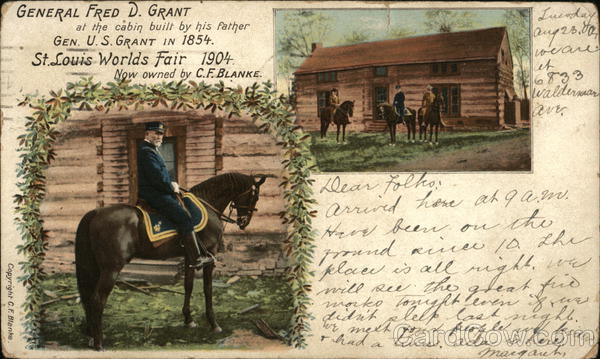 GENERAL FRED D. GRANT
at the cabin built by his father
GEN. U.S. GRANT IN 1854.
ST. LOUIS WORLDS FAIR 1904.
Now owned by C.F. BLANKE.
Tuesday
Aug 23.
we are
at
6833
Waldemar
Ave.
Dear Folks:
Arrived here at 9 A.M.
Have been on the
ground since 10. The
place is all right. we
will see the great fire
works tonight even if we
didn't sleep last night.
we met
& had a
Margaret
Copyright C.F. Blanke.
CardCow.com